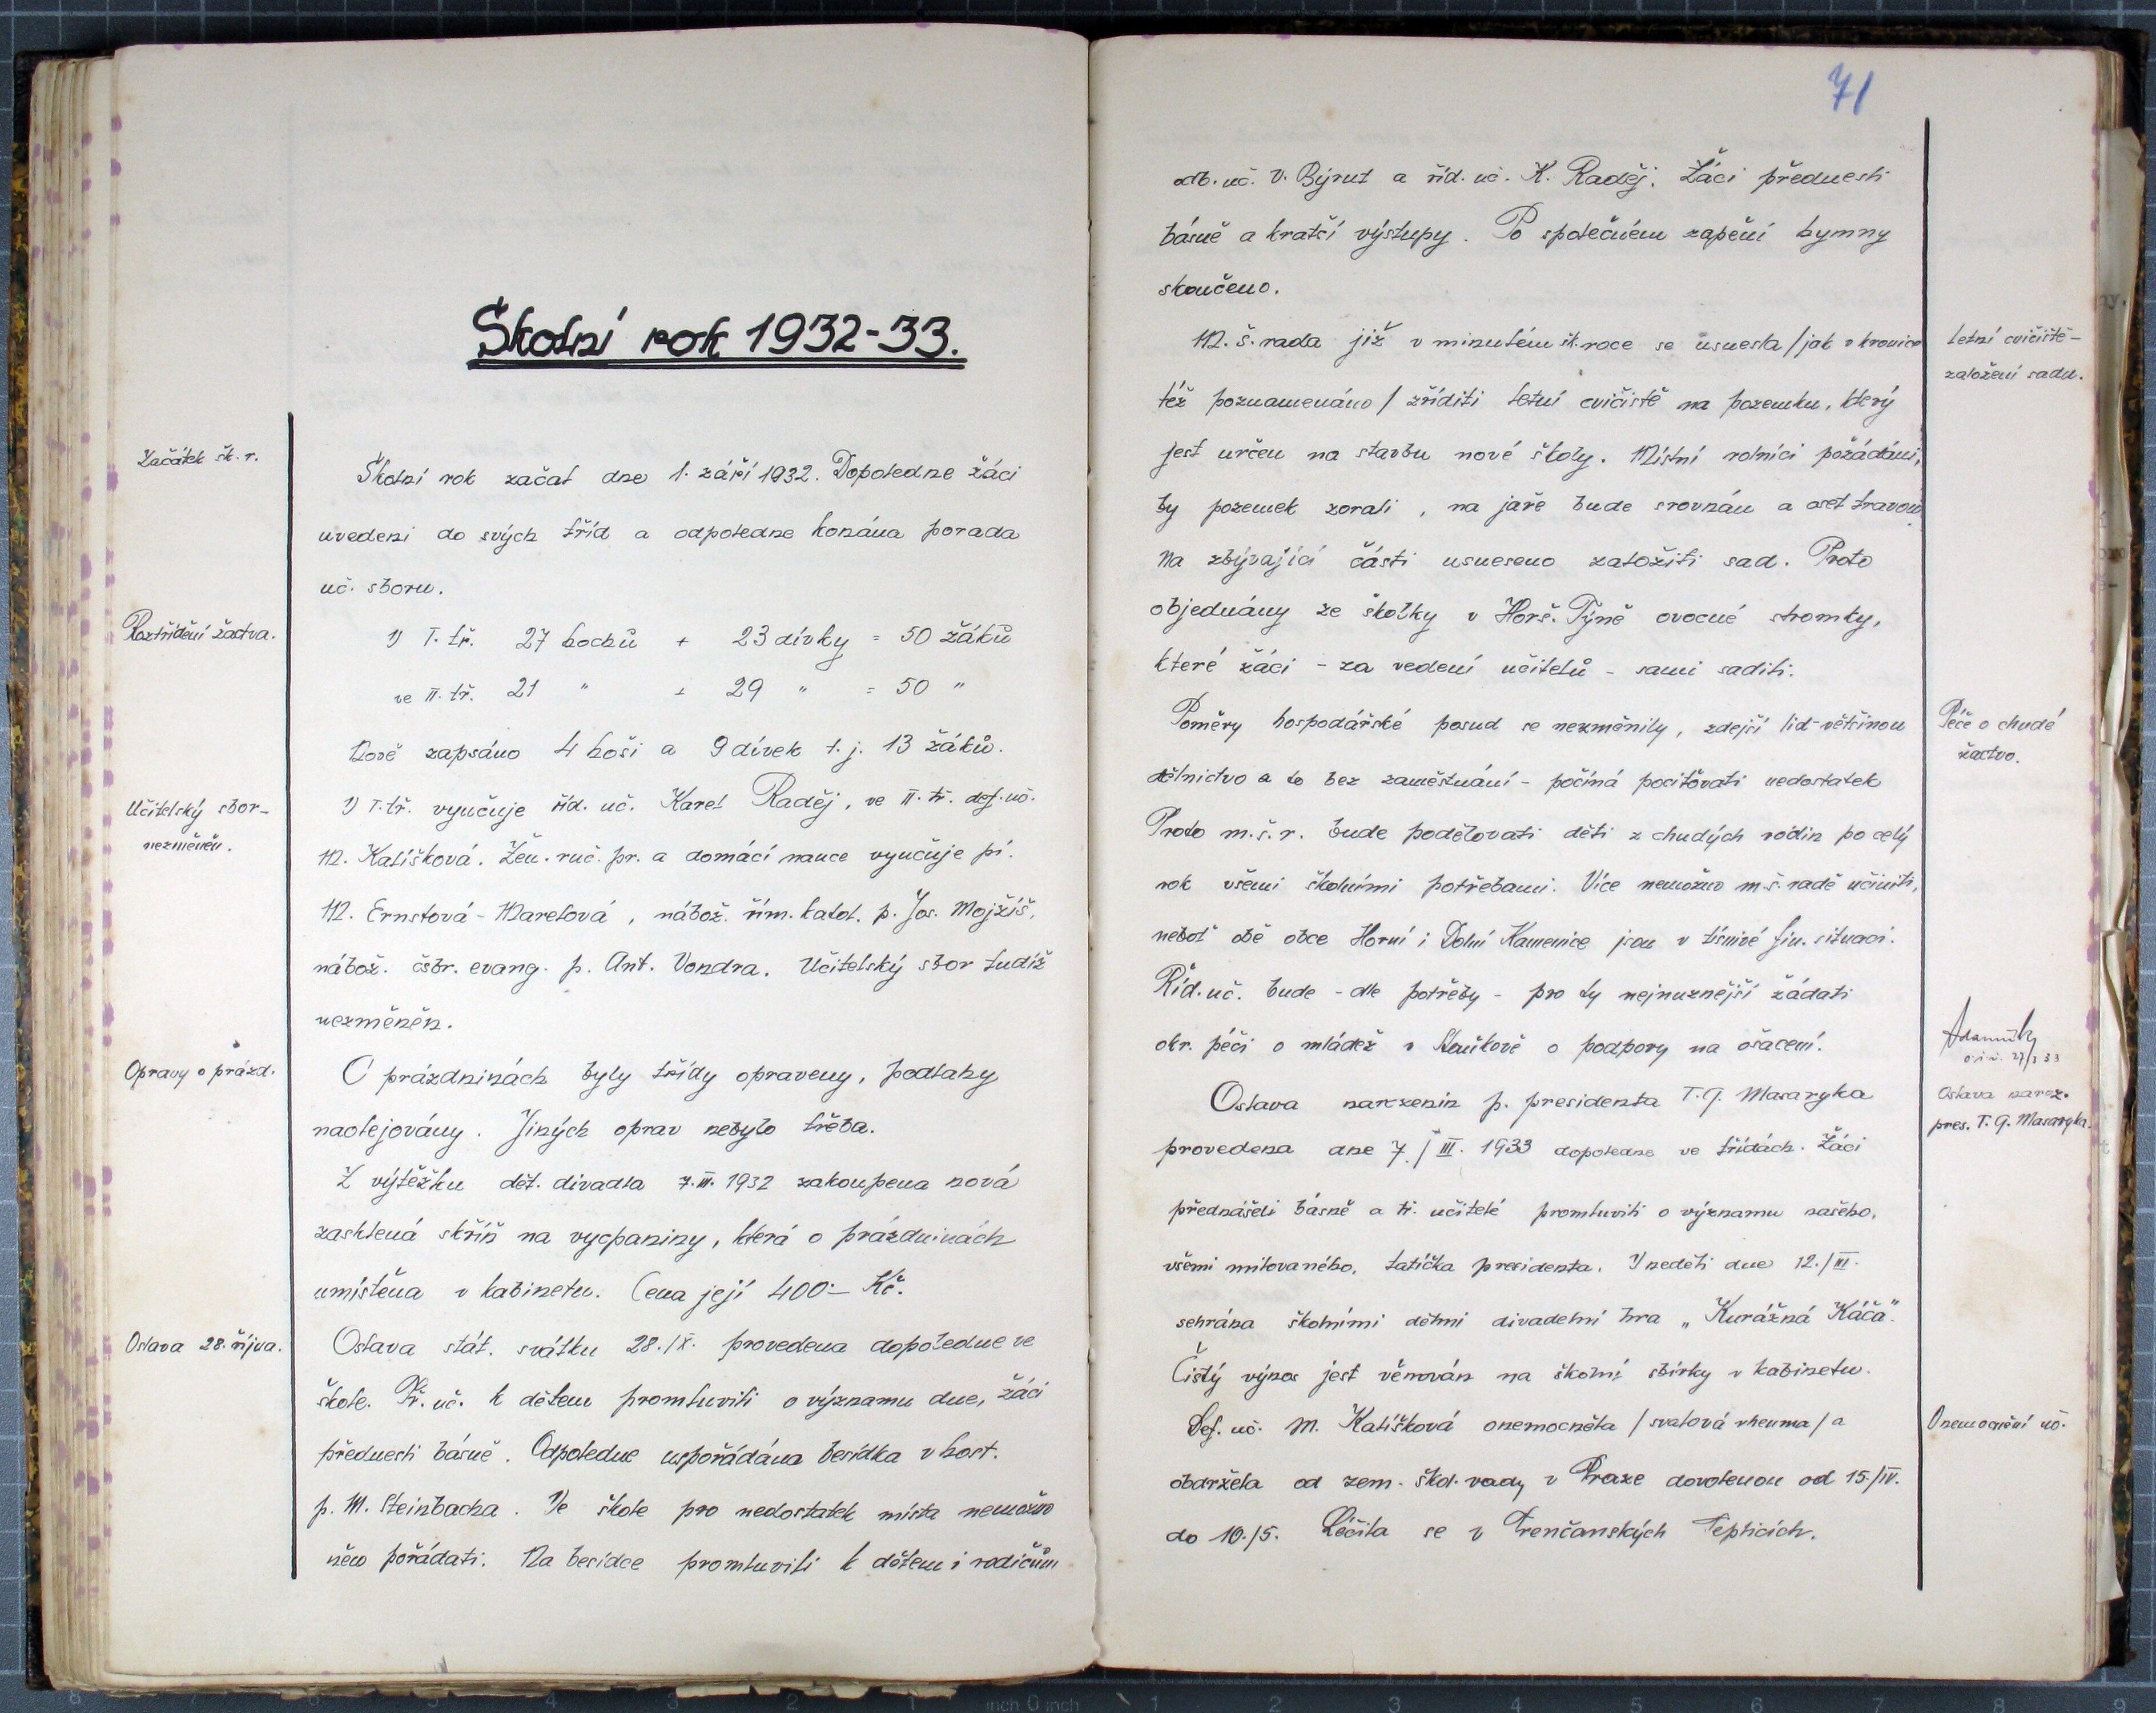 Školní rok 1932-33.
Začátek šk. r.
Školní rok začal dne 1. září 1932. Dopoledne žáci
uvedeni do svých tříd a odpoledne konána porada
uč. sboru.
Roztřídění žactva.
V I. tř. 27 hochů + 23 dívky = 50 žáků
ve II. tř. 21 " + 29 " = 50 "
Nově zapsáno 4 hoši a 9 dívek t. j. 13 žáků.
Učitelský sbor-
nezměněn.
V I. tř. vyučuje říd. uč. Karel Raděj, ve II. tř. def. uč.
M. Kališková. Žen. ruč. pr. a domácí nauce vyučuje pí.
M. Ernstová-Marelová, nábož. řím. katol. p. Jos. Mojžíš,
nábož. čsbr. evang. p. Ant. Vondra. Učitelský sbor tudíž
nezměněn.
Opravy o prázd.
O prázdninách byly třídy opraveny, podlahy
naolejovány. Jiných oprav nebylo třeba.
Z výtěžku dět. divadla 7. III. 1932 zakoupena nová
zasklená skříň na vycpaniny, která o prázdninách
umístěna v kabinetu. Cena její 400 – Kč.
Oslava 28. října.
Oslava stát. svátku 28./X. provedena dopoledne ve
škole. Tř. uč. k dětem promluvili o významu dne, žáci
přednesli básně. Odpoledne uspořádána besídka v host.
p. M. Steinbacha. Ve škole pro nedostatek místa nemožno
něco pořádati. Na besídce promluvili k dětem i rodičům
71
odb. uč. V. Býrut a říd. uč. K. Raděj. Žáci přednesli
básně a kratší výstupy. Po společném zapění hymny
skončeno.
Letní cvičiště-
založení sadu.
M. š. rada již v minulém šk. roce se usnesla /jak v kronice
též poznamenáno/ zříditi letní cvičiště na pozemku, který
jest určen na stavbu nové školy. Místní rolníci požádáni,
by pozemek zorali, na jaře bude srovnán a oset travou
Na zbývající části usneseno založiti sad. Proto
objednány ze školky v Horš. Týně ovocné stromky,
které žáci - za vedení učitelů - sami sadili.
Péče o chudé
žactvo.
Poměry hospodářské posud se nezměnily, zdejší lid-většinou
dělnictvo a to bez zaměstnání - počíná pociťovati nedostatek
Proto m. š. r. bude podělovati děti z chudých rodin po celý
rok všemi školními potřebami. Více nemožno m. š. radě učiniti,
neboť obě obce Horní i Dolní Kamenice jsou v tísnivé fin. situaci.
Říd. uč. bude - dle potřeby - pro ty nejnuznější žádati
okr. péči o mládež v Staňkově o podpory na ošacení.
27/3 33
Oslava naroz.
pres. T. G. Masaryka.
Oslava narozenin p. presidenta T. G. Masaryka
provedena dne 7./III. 1933 dopoledne ve třídách. Žáci
přednášeli básně a tř. učitelé promluvili o významu našeho,
všemi milovaného, tatíčka presidenta. V neděli dne 12./III.
sehrána školními dětmi divadelní hra „Kurážná Káča".
Čistý výnos jest věnován na školní sbírky v kabinetu.
Onemocnění uč.
Def. uč. M. Kališková onemocněla /svalová rheuma/ a
obdržela od zem. škol. rady v Praze dovolenou od 15./IV.
do 10./5. Léčila se v Trenčanských Teplicích.